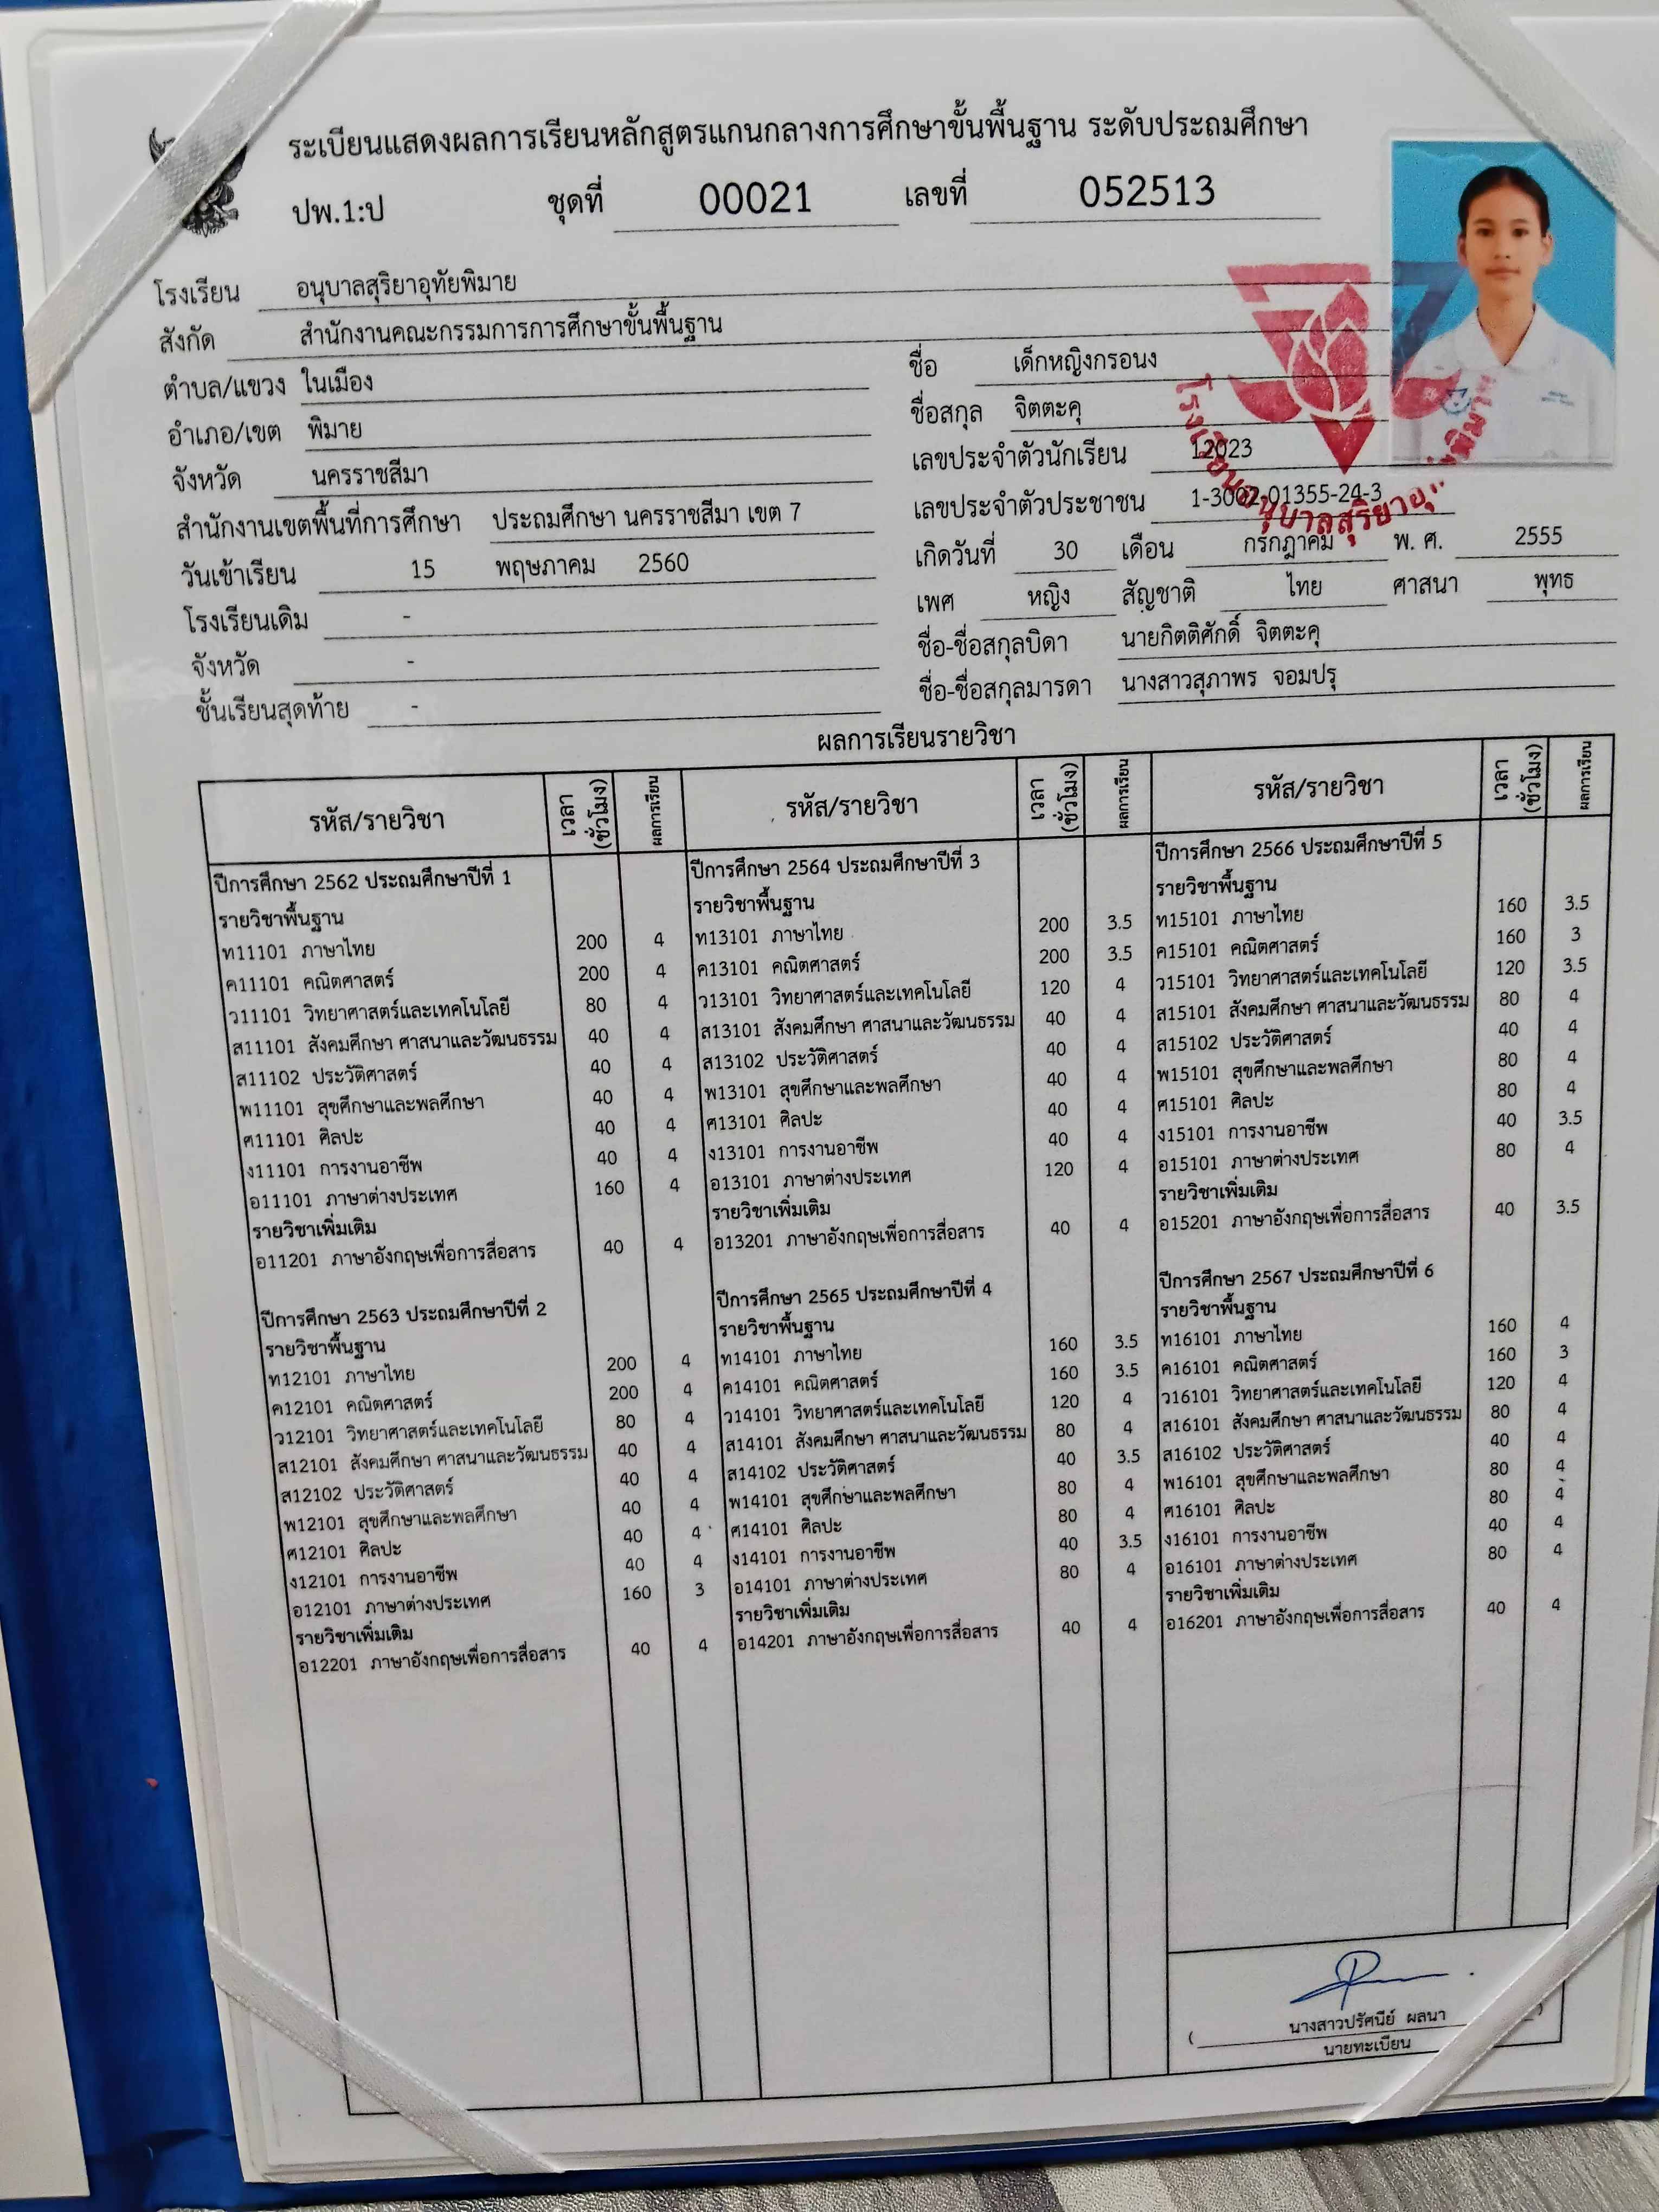 ระเบียนแสดงผลการเรียนหลักสูตรแกนกลางการศึกษาขั้นพื้นฐาน ระดับประถมศึกษา
ปพ.1:ป ชุดที่ 00021 เลขที่ 052513
โรงเรียน อนุบาลสุริยาอุทัยพิมาย
สังกัด สำนักงานคณะกรรมการการศึกษาขั้นพื้นฐาน
ตำบล/แขวง ในเมือง
อำเภอ/เขต พิมาย
จังหวัด นครราชสีมา
สำนักงานเขตพื้นที่การศึกษา ประถมศึกษา นครราชสีมา เขต 7
วันเข้าเรียน 15 พฤษภาคม 2560
โรงเรียนเดิม -
จังหวัด -
ชั้นเรียนสุดท้าย -
ชื่อ เด็กหญิงกรอนง
ชื่อสกุล จิตตะคุ
เลขประจำตัวนักเรียน 12023
เลขประจำตัวประชาชน 1-3002-01355-24-3
เกิดวันที่ 30 เดือน กรกฎาคม พ. ศ. 2555
เพศ หญิง สัญชาติ ไทย ศาสนา พุทธ
ชื่อ-ชื่อสกุลบิดา นายกิตติศักดิ์ จิตตะคุ
ชื่อ-ชื่อสกุลมารดา นางสาวสุภาพร จอมปรุ
ผลการเรียนรายวิชา
รหัส/รายวิชา เวลา (ชั่วโมง) ผลการเรียน
ปีการศึกษา 2562 ประถมศึกษาปีที่ 1
รายวิชาพื้นฐาน
ท11101 ภาษาไทย 200 4
ค11101 คณิตศาสตร์ 200 4
ว11101 วิทยาศาสตร์และเทคโนโลยี 80 4
ส11101 สังคมศึกษา ศาสนาและวัฒนธรรม 40 4
ส11102 ประวัติศาสตร์ 40 4
พ11101 สุขศึกษาและพลศึกษา 40 4
ศ11101 ศิลปะ 40 4
ง11101 การงานอาชีพ 40 4
อ11101 ภาษาต่างประเทศ 160 4
รายวิชาเพิ่มเติม
อ11201 ภาษาอังกฤษเพื่อการสื่อสาร 40 4
ปีการศึกษา 2563 ประถมศึกษาปีที่ 2
รายวิชาพื้นฐาน
ท12101 ภาษาไทย 200 4
ค12101 คณิตศาสตร์ 200 4
ว12101 วิทยาศาสตร์และเทคโนโลยี 80 4
ส12101 สังคมศึกษา ศาสนาและวัฒนธรรม 40 4
ส12102 ประวัติศาสตร์ 40 4
พ12101 สุขศึกษาและพลศึกษา 40 4
ศ12101 ศิลปะ 40 4
ง12101 การงานอาชีพ 40 4
อ12101 ภาษาต่างประเทศ 160 3
รายวิชาเพิ่มเติม
อ12201 ภาษาอังกฤษเพื่อการสื่อสาร 40 4
รหัส/รายวิชา เวลา (ชั่วโมง) ผลการเรียน
ปีการศึกษา 2564 ประถมศึกษาปีที่ 3
รายวิชาพื้นฐาน
ท13101 ภาษาไทย 200 3.5
ค13101 คณิตศาสตร์ 200 3.5
ว13101 วิทยาศาสตร์และเทคโนโลยี 120 4
ส13101 สังคมศึกษา ศาสนาและวัฒนธรรม 40 4
ส13102 ประวัติศาสตร์ 40 4
พ13101 สุขศึกษาและพลศึกษา 40 4
ศ13101 ศิลปะ 40 4
ง13101 การงานอาชีพ 40 4
อ13101 ภาษาต่างประเทศ 120 4
รายวิชาเพิ่มเติม
อ13201 ภาษาอังกฤษเพื่อการสื่อสาร 40 4
ปีการศึกษา 2565 ประถมศึกษาปีที่ 4
รายวิชาพื้นฐาน
ท14101 ภาษาไทย 160 3.5
ค14101 คณิตศาสตร์ 160 3.5
ว14101 วิทยาศาสตร์และเทคโนโลยี 120 4
ส14101 สังคมศึกษา ศาสนาและวัฒนธรรม 80 4
ส14102 ประวัติศาสตร์ 40 3.5
พ14101 สุขศึกษาและพลศึกษา 80 4
ศ14101 ศิลปะ 80 4
ง14101 การงานอาชีพ 40 3.5
อ14101 ภาษาต่างประเทศ 80 4
รายวิชาเพิ่มเติม
อ14201 ภาษาอังกฤษเพื่อการสื่อสาร 40 4
รหัส/รายวิชา เวลา (ชั่วโมง) ผลการเรียน
ปีการศึกษา 2566 ประถมศึกษาปีที่ 5
รายวิชาพื้นฐาน
ท15101 ภาษาไทย 160 3.5
ค15101 คณิตศาสตร์ 160 3
ว15101 วิทยาศาสตร์และเทคโนโลยี 120 3.5
ส15101 สังคมศึกษา ศาสนาและวัฒนธรรม 80 4
ส15102 ประวัติศาสตร์ 40 4
พ15101 สุขศึกษาและพลศึกษา 80 4
ศ15101 ศิลปะ 80 4
ง15101 การงานอาชีพ 40 3.5
อ15101 ภาษาต่างประเทศ 80 4
รายวิชาเพิ่มเติม
อ15201 ภาษาอังกฤษเพื่อการสื่อสาร 40 3.5
ปีการศึกษา 2567 ประถมศึกษาปีที่ 6
รายวิชาพื้นฐาน
ท16101 ภาษาไทย 160 4
ค16101 คณิตศาสตร์ 160 3
ว16101 วิทยาศาสตร์และเทคโนโลยี 120 4
ส16101 สังคมศึกษา ศาสนาและวัฒนธรรม 80 4
ส16102 ประวัติศาสตร์ 40 4
พ16101 สุขศึกษาและพลศึกษา 80 4
ศ16101 ศิลปะ 80 4
ง16101 การงานอาชีพ 40 4
อ16101 ภาษาต่างประเทศ 80 4
รายวิชาเพิ่มเติม
อ16201 ภาษาอังกฤษเพื่อการสื่อสาร 40 4
( นางสาวปรัศนีย์ ผลนา )
นายทะเบียน